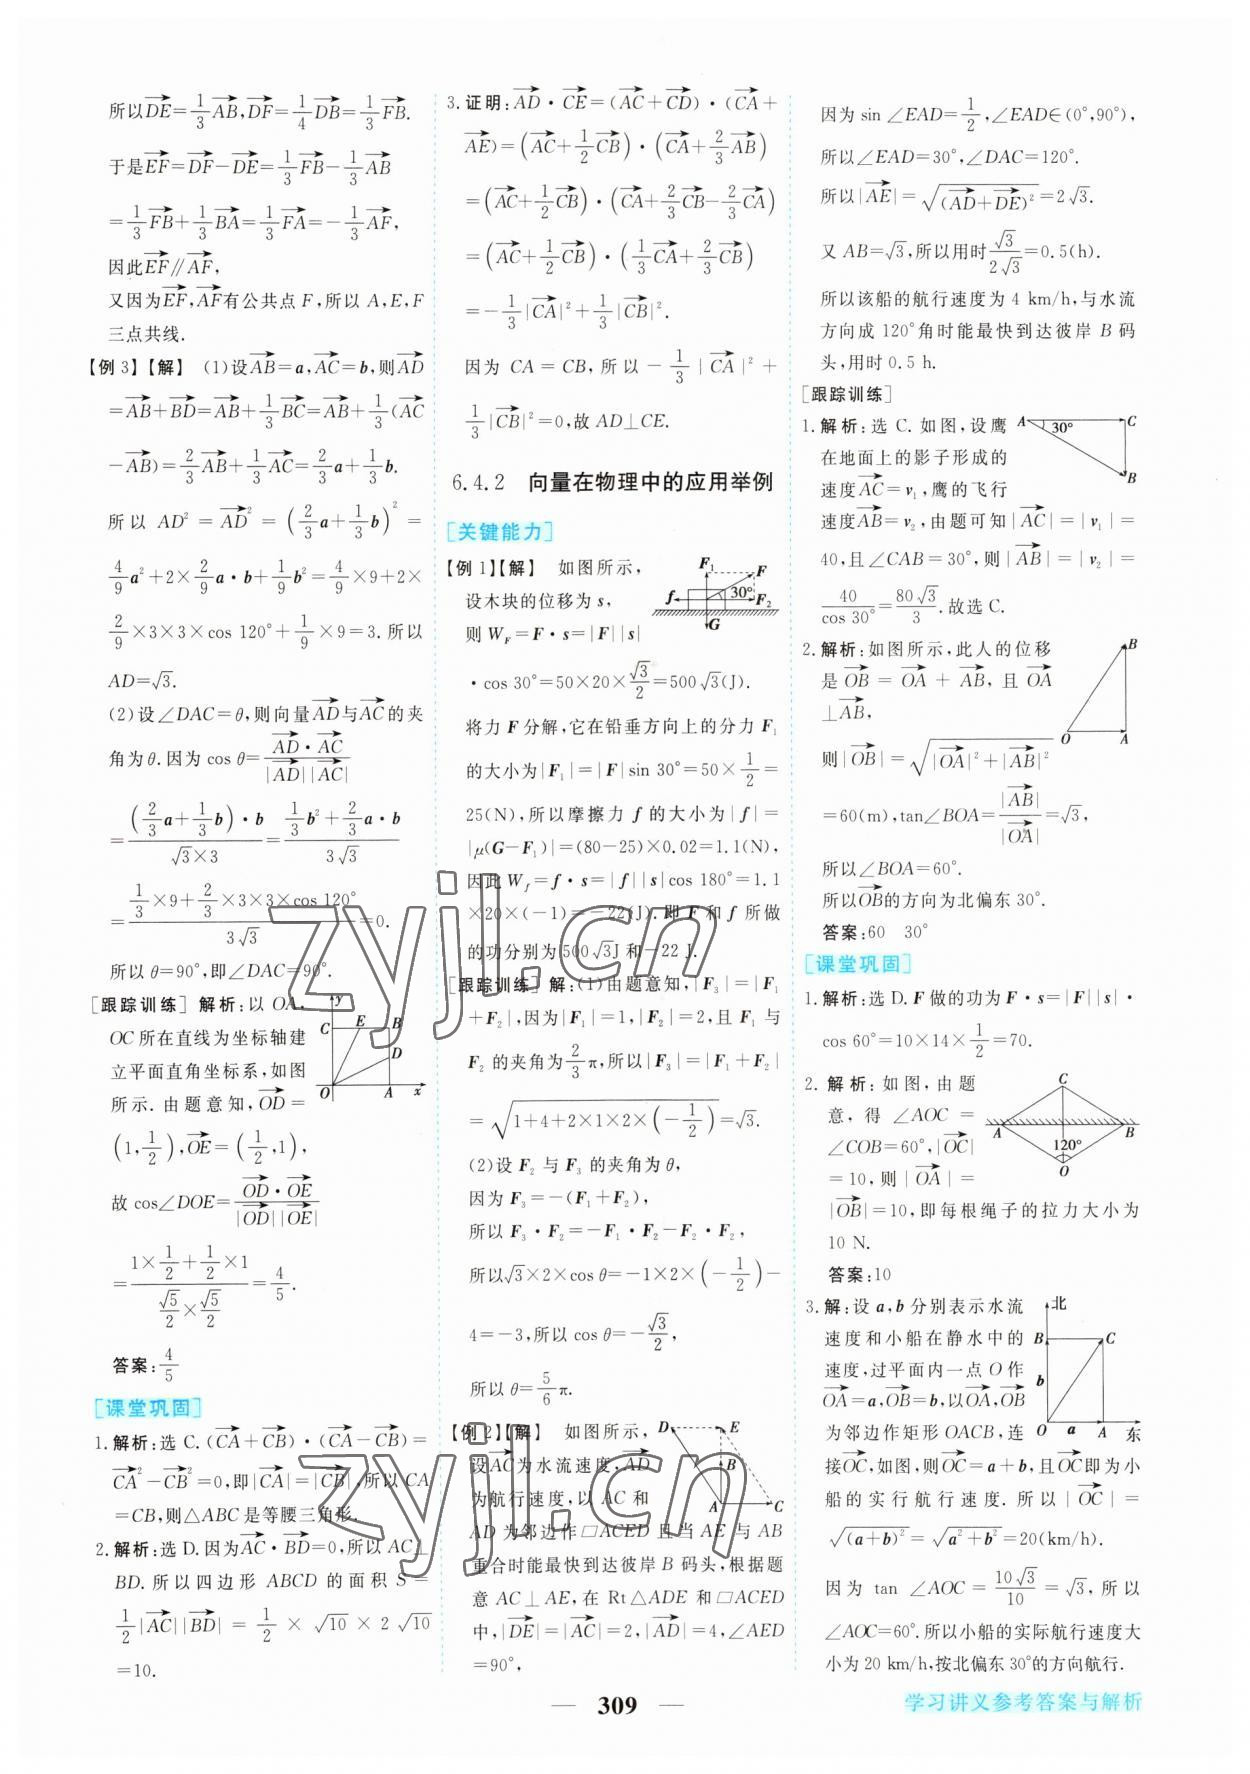 所以$\overrightarrow{DE}=\frac{1}{3}\overrightarrow{AB},\overrightarrow{DF}=\frac{1}{4}\overrightarrow{DB}=\frac{1}{3}\overrightarrow{FB}$.
于是$\overrightarrow{EF}=\overrightarrow{DF}-\overrightarrow{DE}=\frac{1}{3}\overrightarrow{FB}-\frac{1}{3}\overrightarrow{AB}$
$=\frac{1}{3}\overrightarrow{FB}+\frac{1}{3}\overrightarrow{BA}=\frac{1}{3}\overrightarrow{FA}=-\frac{1}{3}\overrightarrow{AF}$,
因此$\overrightarrow{EF}∥\overrightarrow{AF}$,
又因为$\overrightarrow{EF},\overrightarrow{AF}$有公共点 F,所以 A,E,F
三点共线.
【例 3】【解】 (1)设$\overrightarrow{AB}=a,\overrightarrow{AC}=b$,则$\overrightarrow{AD}$
$=\overrightarrow{AB}+\overrightarrow{BD}=\overrightarrow{AB}+\frac{1}{3}\overrightarrow{BC}=\overrightarrow{AB}+\frac{1}{3}(\overrightarrow{AC}$
$-\overrightarrow{AB})=\frac{2}{3}\overrightarrow{AB}+\frac{1}{3}\overrightarrow{AC}=\frac{2}{3}a+\frac{1}{3}b$.
所以 $AD^2=\overrightarrow{AD}^2=\left(\frac{2}{3}a+\frac{1}{3}b\right)^2=$
$\frac{4}{9}a^2+2×\frac{2}{9}a·b+\frac{1}{9}b^2=\frac{4}{9}×9+2×$
$\frac{2}{9}×3×3×\cos 120°+\frac{1}{9}×9=3$. 所以
$AD=\sqrt{3}$.
(2)设∠DAC=θ,则向量$\overrightarrow{AD}$与$\overrightarrow{AC}$的夹
角为θ.因为 $\cos θ=\frac{\overrightarrow{AD}·\overrightarrow{AC}}{|\overrightarrow{AD}||\overrightarrow{AC}|}$
$=\frac{\left(\frac{2}{3}a+\frac{1}{3}b\right)·b}{\sqrt{3}×3}=\frac{\frac{1}{3}b^2+\frac{2}{3}a·b}{3\sqrt{3}}$
$=\frac{\frac{1}{3}×9+\frac{2}{3}×3×3×\cos 120°}{3\sqrt{3}}=0$.
所以 θ=90°,即∠DAC=90°.
[跟踪训练] 解析:以 OA,
OC 所在直线为坐标轴建
立平面直角坐标系,如图
所示. 由题意知,$\overrightarrow{OD}=$
$\left(1,\frac{1}{2}\right),\overrightarrow{OE}=\left(\frac{1}{2},1\right)$,
故 $\cos∠DOE=\frac{\overrightarrow{OD}·\overrightarrow{OE}}{|\overrightarrow{OD}||\overrightarrow{OE}|}$
$=\frac{1×\frac{1}{2}+\frac{1}{2}×1}{\frac{\sqrt{5}}{2}×\frac{\sqrt{5}}{2}}=\frac{4}{5}$.
答案:$\frac{4}{5}$
y C E B D O A x
[课堂巩固]
1.解析:选 C.$(\overrightarrow{CA}+\overrightarrow{CB})·(\overrightarrow{CA}-\overrightarrow{CB})=$
$\overrightarrow{CA}^2-\overrightarrow{CB}^2=0$,即$|\overrightarrow{CA}|=|\overrightarrow{CB}|$,所以 CA
=CB,则△ABC 是等腰三角形.
2.解析:选 D.因为$\overrightarrow{AC}·\overrightarrow{BD}=0$,所以 AC⊥
BD. 所以四边形 ABCD 的面积 S=
$\frac{1}{2}|\overrightarrow{AC}||\overrightarrow{BD}|=\frac{1}{2}×\sqrt{10}×2\sqrt{10}$
=10.
3.证明:$\overrightarrow{AD}·\overrightarrow{CE}=(\overrightarrow{AC}+\overrightarrow{CD})·(\overrightarrow{CA}+$
$\overrightarrow{AE})=\left(\overrightarrow{AC}+\frac{1}{2}\overrightarrow{CB}\right)·\left(\overrightarrow{CA}+\frac{2}{3}\overrightarrow{AB}\right)$
$=\left(\overrightarrow{AC}+\frac{1}{2}\overrightarrow{CB}\right)·\left(\overrightarrow{CA}+\frac{2}{3}\overrightarrow{CB}-\frac{2}{3}\overrightarrow{CA}\right)$
$=\left(\overrightarrow{AC}+\frac{1}{2}\overrightarrow{CB}\right)·\left(\frac{1}{3}\overrightarrow{CA}+\frac{2}{3}\overrightarrow{CB}\right)$
$=-\frac{1}{3}|\overrightarrow{CA}|^2+\frac{1}{3}|\overrightarrow{CB}|^2$.
因为 CA=CB,所以 $-\frac{1}{3}|\overrightarrow{CA}|^2+$
$\frac{1}{3}|\overrightarrow{CB}|^2=0$,故 AD⊥CE.
6.4.2 向量在物理中的应用举例
[关键能力]
【例 1】【解】 如图所示,
设木块的位移为 s,
则 $W_F=F·s=|F||s|$
$·\cos 30°=50×20×\frac{\sqrt{3}}{2}=500\sqrt{3}$(J).
F₁ F f 30° F₂ G
将力 F 分解,它在铅垂方向上的分力 F₁
的大小为$|F_1|=|F|\sin 30°=50×\frac{1}{2}=$
25(N),所以摩擦力 f 的大小为 |f|=
|μ(G−F₁)|=(80−25)×0.02=1.1(N),
因此 $W_f=f·s=|f||s|\cos 180°=1.1$
×20×(−1)=−22(J).即 F 和 f 所做
的功分别为$500\sqrt{3}$J 和−22 J.
[跟踪训练] 解:(1)由题意知,|F₃|=|F₁
+F₂|,因为|F₁|=1,|F₂|=2,且 F₁ 与
F₂ 的夹角为$\frac{2}{3}π$,所以|F₃|=|F₁+F₂|
$=\sqrt{1+4+2×1×2×\left(-\frac{1}{2}\right)}=\sqrt{3}$.
(2)设 F₂ 与 F₃ 的夹角为 θ,
因为 F₃=−(F₁+F₂),
所以 F₃·F₂=−F₁·F₂−F₂·F₂,
所以$\sqrt{3}×2×\cos θ=-1×2×\left(-\frac{1}{2}\right)-$
4=−3,所以 $\cos θ=-\frac{\sqrt{3}}{2}$,
所以 $θ=\frac{5}{6}π$.
【例 2】【解】 如图所示,
设$\overrightarrow{AC}$为水流速度,$\overrightarrow{AD}$
为航行速度,以 AC 和
AD 为邻边作▱ACED 且当 AE 与 AB
重合时能最快到达彼岸 B 码头,根据题
意 AC⊥AE,在 Rt△ADE 和▱ACED
中,$|\overrightarrow{DE}|=|\overrightarrow{AC}|=2,|\overrightarrow{AD}|=4$,∠AED
=90°,
D E B A C
因为 $\sin∠EAD=\frac{1}{2}$,∠EAD∈(0°,90°),
所以∠EAD=30°,∠DAC=120°.
所以$|\overrightarrow{AE}|=\sqrt{(\overrightarrow{AD}+\overrightarrow{DE})^2}=2\sqrt{3}$.
又 $AB=\sqrt{3}$,所以用时$\frac{\sqrt{3}}{2\sqrt{3}}=0.5$(h).
所以该船的航行速度为 4 km/h,与水流
方向成 120°角时能最快到达彼岸 B 码
头,用时 0.5 h.
[跟踪训练]
1.解析:选 C. 如图,设鹰
在地面上的影子形成的
速度$\overrightarrow{AC}=v_1$,鹰的飞行
速度$\overrightarrow{AB}=v_2$,由题可知$|\overrightarrow{AC}|=|v_1|=$
40,且∠CAB=30°,则$|\overrightarrow{AB}|=|v_2|=$
$\frac{40}{\cos 30°}=\frac{80\sqrt{3}}{3}$.故选 C.
A 30° C B
2.解析:如图所示,此人的位移
是$\overrightarrow{OB}=\overrightarrow{OA}+\overrightarrow{AB}$,且$\overrightarrow{OA}$
$⊥\overrightarrow{AB}$,
则$|\overrightarrow{OB}|=\sqrt{|\overrightarrow{OA}|^2+|\overrightarrow{AB}|^2}$
=60(m),$\tan∠BOA=\frac{|\overrightarrow{AB}|}{|\overrightarrow{OA}|}=\sqrt{3}$,
所以∠BOA=60°.
所以$\overrightarrow{OB}$的方向为北偏东 30°.
答案:60 30°
B O A
[课堂巩固]
1.解析:选 D. F 做的功为 F·s=|F||s|·
$\cos 60°=10×14×\frac{1}{2}=70$.
2.解析:如图,由题
意,得 ∠AOC=
∠COB=60°,$|\overrightarrow{OC}|$
=10,则$|\overrightarrow{OA}|=$
$|\overrightarrow{OB}|=10$,即每根绳子的拉力大小为
10 N.
答案:10
C A B 120° O
3.解:设 a,b 分别表示水流
速度和小船在静水中的
速度,过平面内一点 O 作
$\overrightarrow{OA}=a,\overrightarrow{OB}=b$,以$\overrightarrow{OA},\overrightarrow{OB}$
为邻边作矩形 OACB,连
接$\overrightarrow{OC}$,如图,则$\overrightarrow{OC}=a+b$,且$\overrightarrow{OC}$即为小
船的实行航行速度. 所以$|\overrightarrow{OC}|=$
$\sqrt{(a+b)^2}=\sqrt{a^2+b^2}=20$(km/h),
因为 $\tan∠AOC=\frac{10\sqrt{3}}{10}=\sqrt{3}$,所以
∠AOC=60°.所以小船的实际航行速度大
小为 20 km/h,按北偏东 30°的方向航行.
北 B C b O a A 东
zyjl.cn
309
学习讲义参考答案与解析